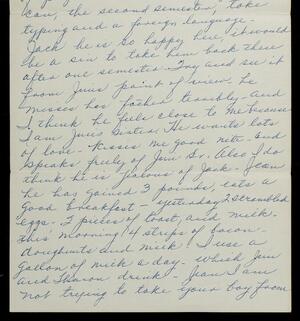 can, the second semester, take
typing and a foreign language.
Jack he is so happy here, it would
be a sin to take him back there
after one semester. Try and see it
from Jims point of view. He
misses his father terribly and
I think he feels close to me because
I am Jims Sister. He wants lots
of love. Kisses me good nite. And
speaks freely of Jim Sr. Also I do
think he is jealous of Jack. Jean
he has gained 3 pounds, eats a
good breakfast - yesterday 2 scrambled
eggs - 2 pieces of toast, and milk.
This morning 4 strips of bacon
doughnuts and milk. I use a
gallon of milk a day - which Jim
and Sharon drink - Jean I am
not trying to take your boy from